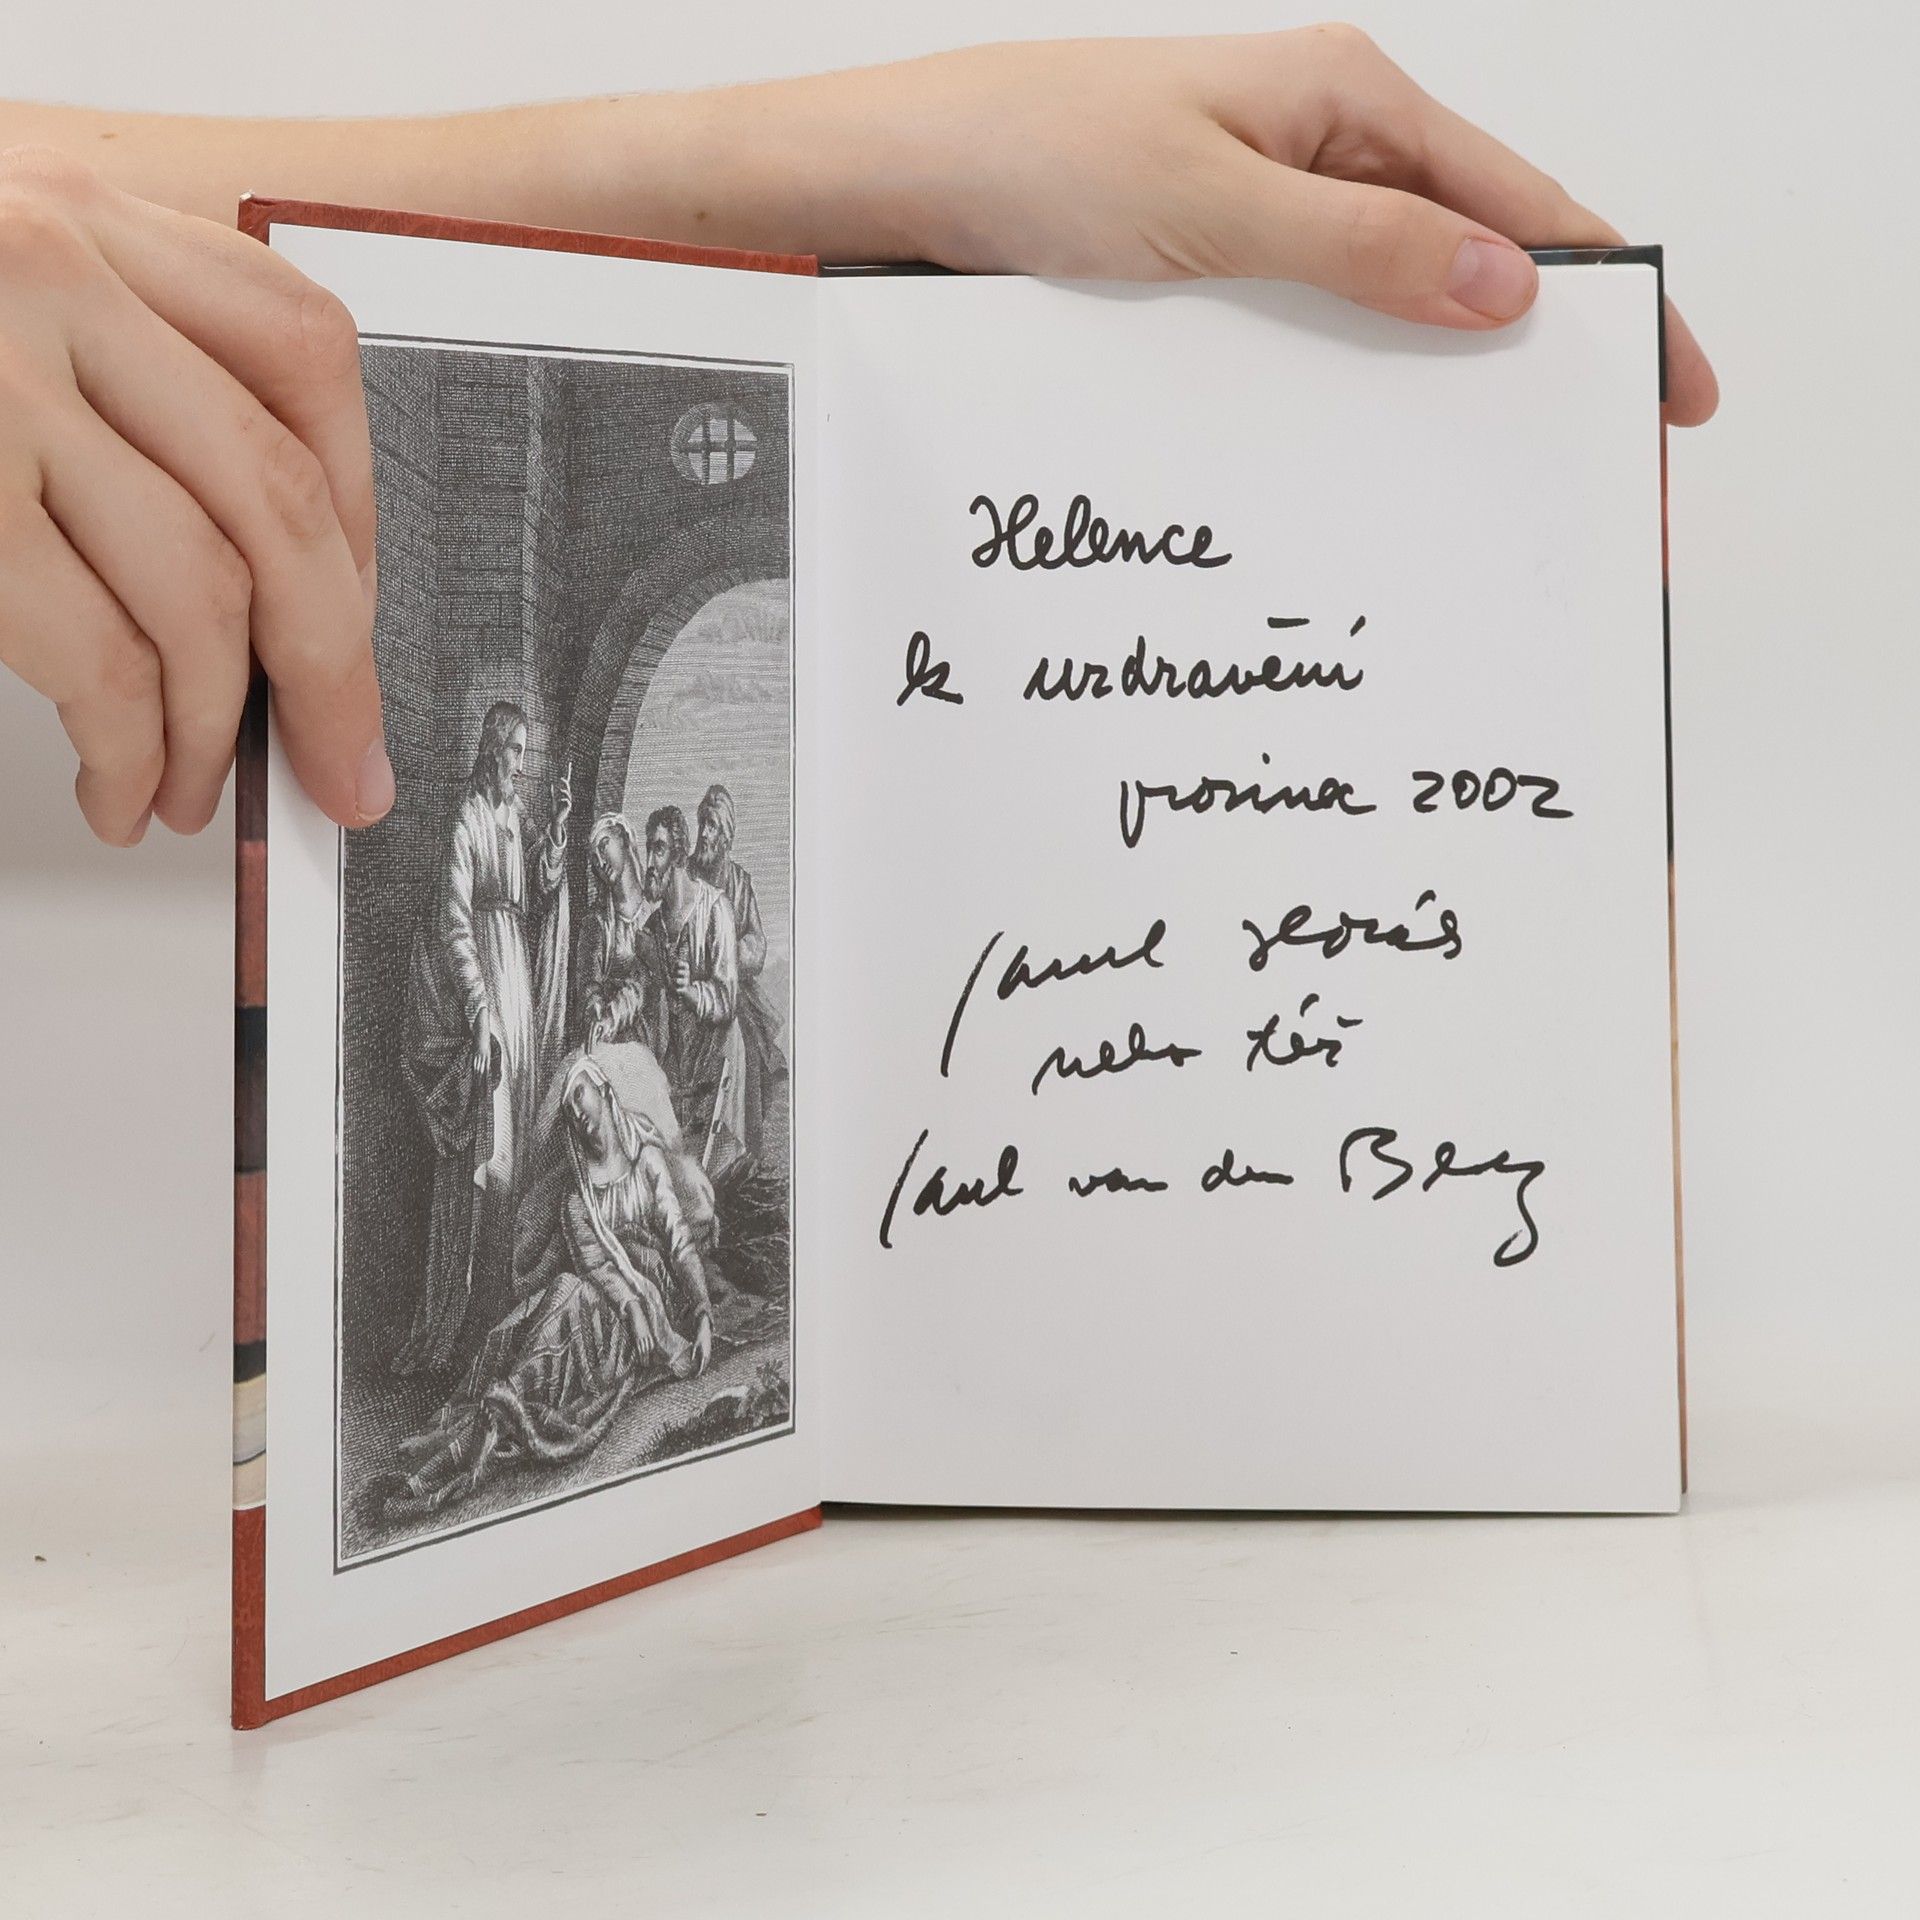 Helence
k uzdravení
prosinec 2002
nebo též
Paul van den Berg